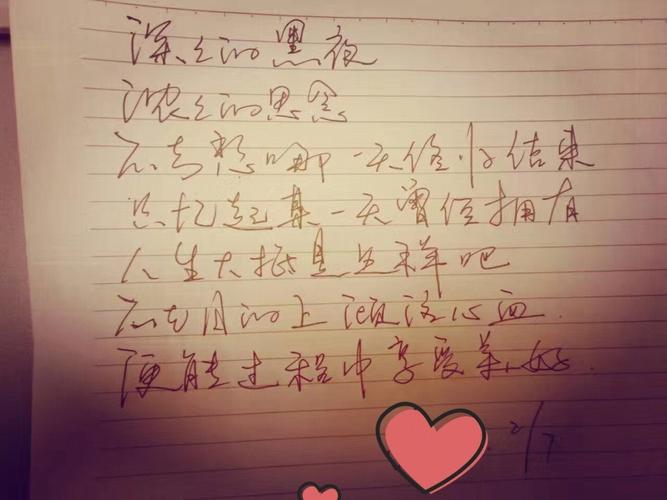 深々的黑夜
浓々的思念
不去想哪一天终归结束
只忆起某一天曾经拥有
人生大抵是这样吧
不在目的上倾注心血.
便能过程中享受美好.
2/7